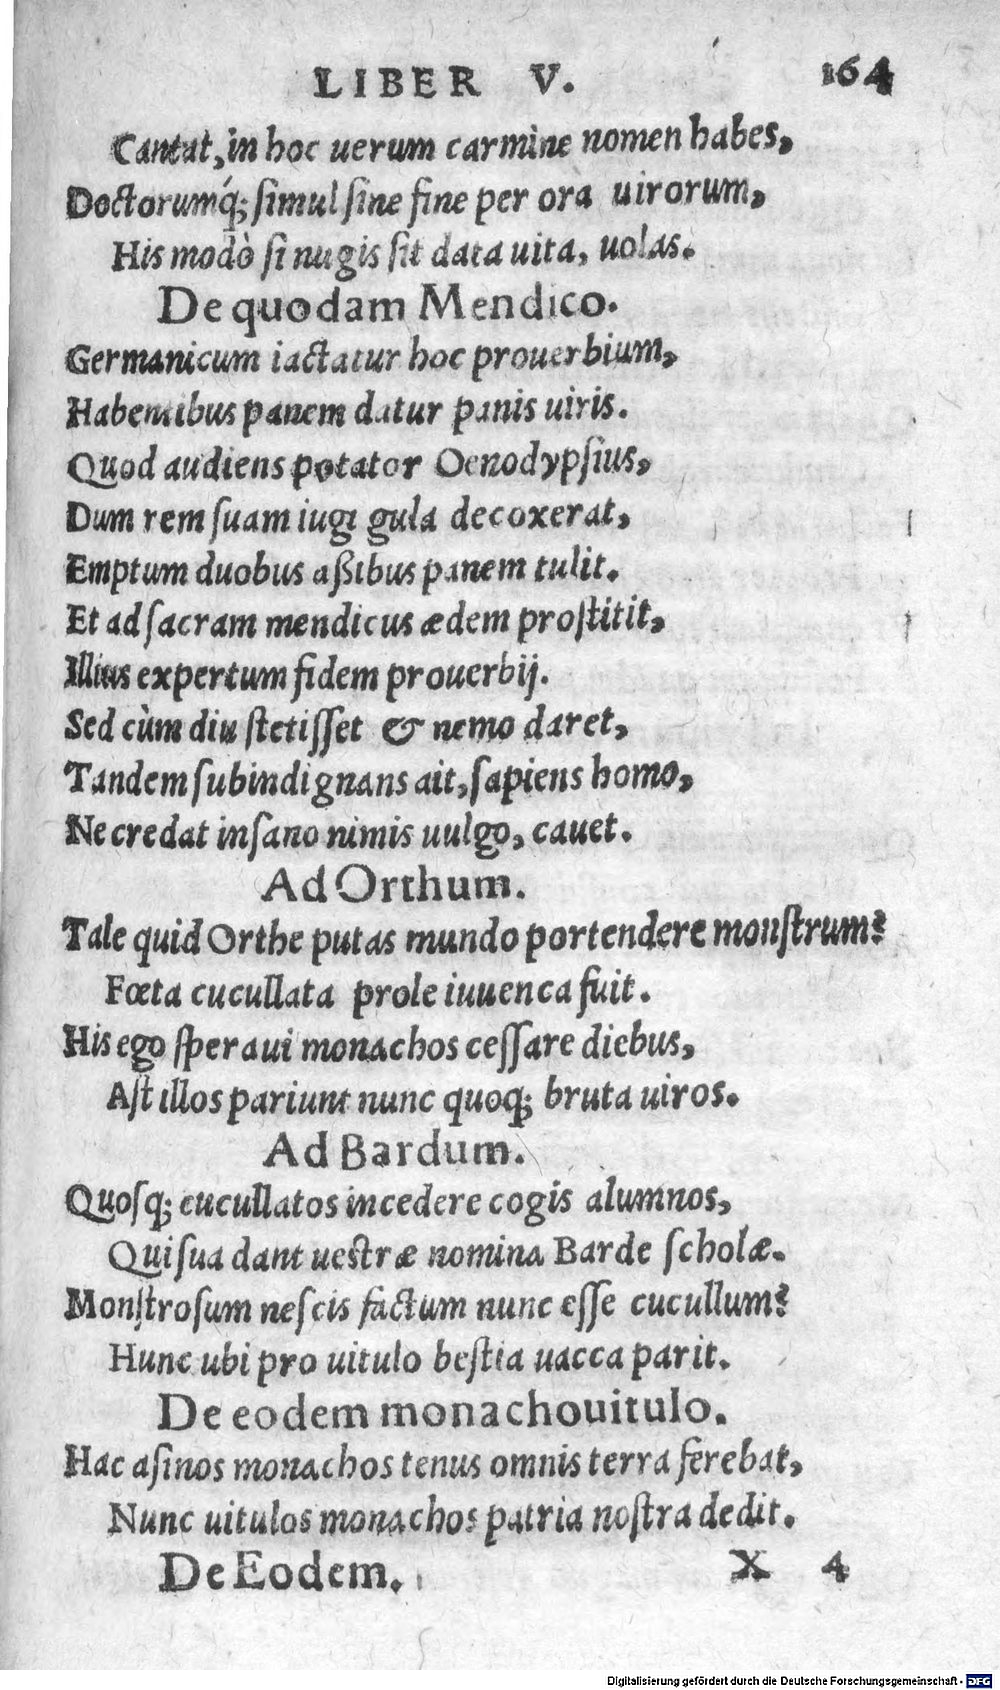 LIBER V. 164
Cantat, in hoc uerum carmine nomen habes,
Doctorumq́; simul sine fine per ora uirorum,
His modò si nugis sit data uita, uolas.
De quodam Mendico.
Germanicum iactatur hoc prouerbium,
Habentibus panem datur panis uiris.
Quod audiens potator Oenodypsius,
Dum rem suam iugi gula decoxerat,
Emptum duobus aßibus panem tulit.
Et ad sacram mendicus ædem prostitit,
Illius expertum fidem prouerbij.
Sed cùm diu stetisset & nemo daret,
Tandem subindignans ait, sapiens homo,
Ne credat insano nimis uulgo, cauet.
Ad Orthum.
Tale quid Orthe putas mundo portendere monstrum?
Fœta cucullata prole iuuenca fuit.
His ego speraui monachos cessare diebus,
Ast illos pariunt nunc quoq; bruta uiros.
Ad Bardum.
Quosq; cucullatos incedere cogis alumnos,
Qui sua dant uestræ nomina Barde scholæ.
Monstrosum nescis factum nunc esse cucullum?
Hunc ubi pro uitulo bestia uacca parit.
De eodem monachouitulo.
Hac asinos monachos tenus omnis terra ferebat,
Nunc uitulos monachos patria nostra dedit.
De Eodem. X 4
Digitalisierung gefördert durch die Deutsche Forschungsgemeinschaft - DFG